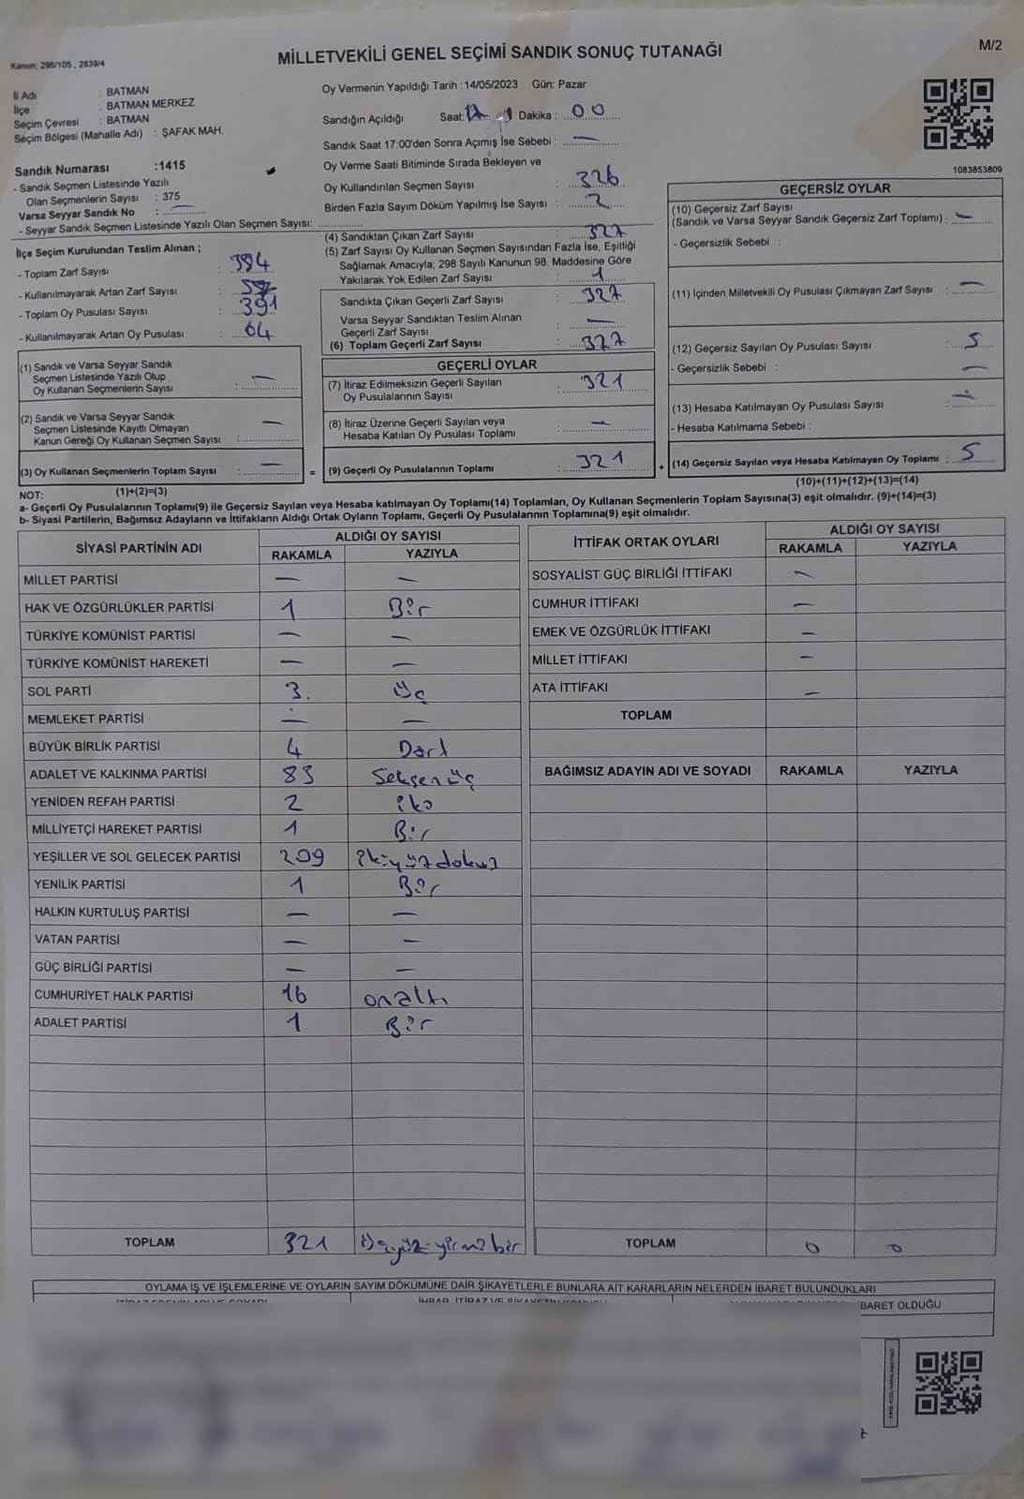 Kanun: 298/105 , 2839/4
MİLLETVEKİLİ GENEL SEÇİMİ SANDIK SONUÇ TUTANAĞI
M/2
İl Adı : BATMAN
İlçe : BATMAN MERKEZ
Seçim Çevresi : BATMAN
Seçim Bölgesi (Mahalle Adı) : ŞAFAK MAH.
Sandık Numarası :1415
- Sandık Seçmen Listesinde Yazılı
Olan Seçmenlerin Sayısı : 375
Varsa Seyyar Sandık No : —
- Seyyar Sandık Seçmen Listesinde Yazılı Olan Seçmen Sayısı:
İlçe Seçim Kurulundan Teslim Alınan ;
- Toplam Zarf Sayısı : 394
- Kullanılmayarak Artan Zarf Sayısı :
- Toplam Oy Pusulası Sayısı : 391
- Kullanılmayarak Artan Oy Pusulası : 64
(1) Sandık ve Varsa Seyyar Sandık
Seçmen Listesinde Yazılı Olup
Oy Kullanan Seçmenlerin Sayısı : —
(2) Sandık ve Varsa Seyyar Sandık
Seçmen Listesinde Kayıtlı Olmayan
Kanun Gereği Oy Kullanan Seçmen Sayısı : —
(3) Oy Kullanan Seçmenlerin Toplam Sayısı : —
(1)+(2)=(3)
Oy Vermenin Yapıldığı Tarih :14/05/2023 Gün: Pazar
Sandığın Açıldığı Saat: 17 Dakika : 00
Sandık Saat 17:00'den Sonra Açımış İse Sebebi : —
Oy Verme Saati Bitiminde Sırada Bekleyen ve
Oy Kullandırılan Seçmen Sayısı : 326
Birden Fazla Sayım Döküm Yapılmış İse Sayısı : 2
(4) Sandıktan Çıkan Zarf Sayısı : 327
(5) Zarf Sayısı Oy Kullanan Seçmen Sayısından Fazla İse, Eşitliği
Sağlamak Amacıyla; 298 Sayılı Kanunun 98. Maddesine Göre
Yakılarak Yok Edilen Zarf Sayısı : 1
Sandıkta Çıkan Geçerli Zarf Sayısı : 327
Varsa Seyyar Sandıktan Teslim Alınan
Geçerli Zarf Sayısı : —
(6) Toplam Geçerli Zarf Sayısı : 327
GEÇERLİ OYLAR
(7) İtiraz Edilmeksizin Geçerli Sayılan
Oy Pusulalarının Sayısı : 321
(8) İtiraz Üzerine Geçerli Sayılan veya
Hesaba Katılan Oy Pusulası Toplamı : —
= (9) Geçerli Oy Pusulalarının Toplamı : 321
1083853809
GEÇERSİZ OYLAR
(10) Geçersiz Zarf Sayısı
(Sandık ve Varsa Seyyar Sandık Geçersiz Zarf Toplamı) : —
- Geçersizlik Sebebi :
(11) İçinden Milletvekili Oy Pusulası Çıkmayan Zarf Sayısı : —
(12) Geçersiz Sayılan Oy Pusulası Sayısı : 5
- Geçersizlik Sebebi : —
(13) Hesaba Katılmayan Oy Pusulası Sayısı : —
- Hesaba Katılmama Sebebi :
+ (14) Geçersiz Sayılan veya Hesaba Katılmayan Oy Toplamı : 5
(10)+(11)+(12)+(13)=(14)
NOT:
a- Geçerli Oy Pusulalarının Toplamı(9) ile Geçersiz Sayılan veya Hesaba katılmayan Oy Toplamı(14) Toplamları, Oy Kullanan Seçmenlerin Toplam Sayısına(3) eşit olmalıdır. (9)+(14)=(3)
b- Siyasi Partilerin, Bağımsız Adayların ve İttifakların Aldığı Ortak Oyların Toplamı, Geçerli Oy Pusulalarının Toplamına(9) eşit olmalıdır.
SİYASİ PARTİNİN ADI ALDIĞI OY SAYISI
RAKAMLA YAZIYLA
MİLLET PARTİSİ — —
HAK VE ÖZGÜRLÜKLER PARTİSİ 1 Bir
TÜRKİYE KOMÜNİST PARTİSİ — —
TÜRKİYE KOMÜNİST HAREKETİ — —
SOL PARTİ 3. üç
MEMLEKET PARTİSİ — —
BÜYÜK BİRLİK PARTİSİ 4 Dört
ADALET VE KALKINMA PARTİSİ 83 Seksen üç
YENİDEN REFAH PARTİSİ 2 iki
MİLLİYETÇİ HAREKET PARTİSİ 1 Bir
YEŞİLLER VE SOL GELECEK PARTİSİ 209 ikiyüz dokuz
YENİLİK PARTİSİ 1 Bir
HALKIN KURTULUŞ PARTİSİ — —
VATAN PARTİSİ — —
GÜÇ BİRLİĞİ PARTİSİ — —
CUMHURİYET HALK PARTİSİ 16 onaltı
ADALET PARTİSİ 1 Bir
TOPLAM 321 üçyüz yirmi bir
İTTİFAK ORTAK OYLARI ALDIĞI OY SAYISI
RAKAMLA YAZIYLA
SOSYALİST GÜÇ BİRLİĞİ İTTİFAKI —
CUMHUR İTTİFAKI —
EMEK VE ÖZGÜRLÜK İTTİFAKI —
MİLLET İTTİFAKI —
ATA İTTİFAKI —
TOPLAM
BAĞIMSIZ ADAYIN ADI VE SOYADI RAKAMLA YAZIYLA
TOPLAM 0 0
OYLAMA İŞ VE İŞLEMLERİNE VE OYLARIN SAYIM DÖKÜMÜNE DAİR ŞİKAYETLERLE BUNLARA AİT KARARLARIN NELERDEN İBARET BULUNDUKLARI
BARET OLDUĞU